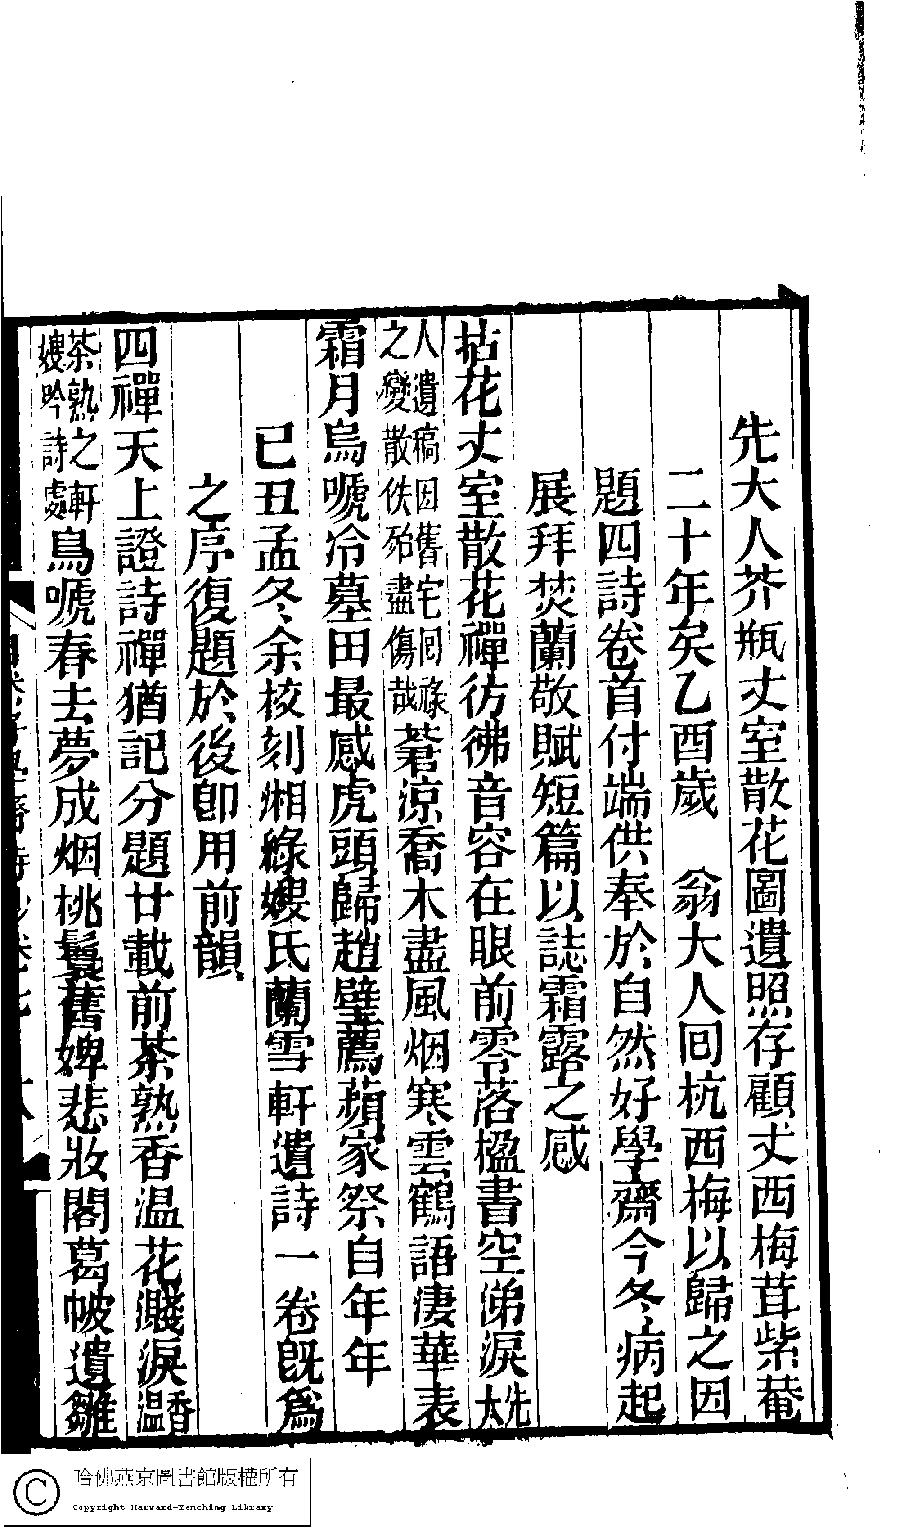 先大人芥瓶丈室散花圖遺照存顧丈西梅茸紫菴
二十年矣乙酉歲 翁大人囘杭西梅以歸之因
題四詩卷首付端供奉於自然好學齋今冬病起
展拜焚蘭敬賦短篇以誌霜露之感
拈花丈室散花禪彷彿音容在眼前零落楹書空涕淚先大
人遺稿因舊宅囘祿之變散佚殆盡傷哉蒼涼喬木盡風烟寒雲鶴語淒華表
霜月烏嗁冷墓田最感虎頭歸趙璧薦蘋家祭自年年
已丑孟冬余校刻湘綠嫂氏蘭雪軒遺詩一卷旣爲
之序復題於後卽用前韻
四禪天上證詩禪猶記分題廿載前茶熟香温花濺淚香温
茶熟之軒嫂吟詩處鳥嗁春去夢成烟桃鬟舊婢悲妝閣葛帔遺雛
自然好學齋詩鈔卷七
哈佛燕京圖書館版權所有
Copyright Harvard-Yenching Library